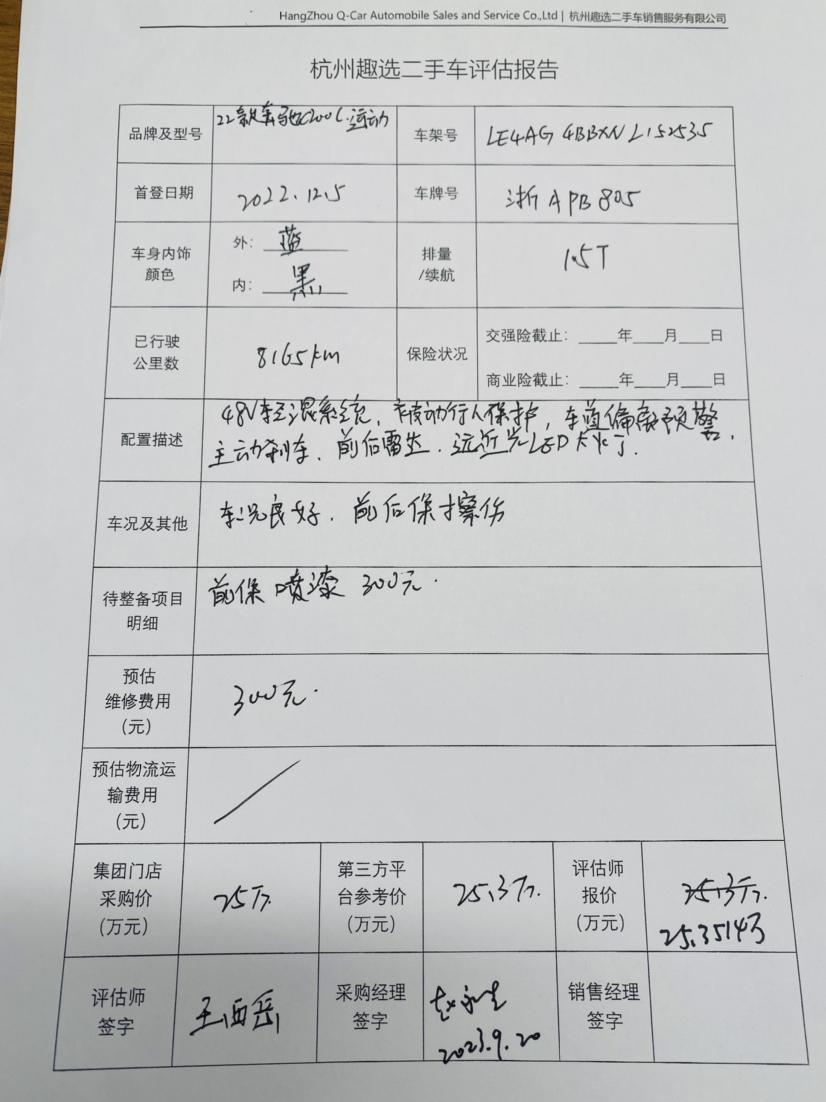 HangZhou Q-Car Automobile Sales and Service Co.,Ltd | 杭州趣选二手车销售服务有限公司
杭州趣选二手车评估报告
品牌及型号 22款奔驰C200L运动 车架号 LE4AG4BBXNL152535
首登日期 2022.12.5 车牌号 浙APB805
车身内饰
颜色
外: 蓝
内: 黑
排量
/续航
1.5T
已行驶
公里数
8165km
保险状况
交强险截止: ____年____月____日
商业险截止: ____年____月____日
配置描述
48V轻混系统,被动行人保护,车道偏离预警,
主动刹车.前后雷达.远近光LED大灯.
车况及其他 车况良好.前后保擦伤
待整备项目
明细
前保喷漆 300元.
预估
维修费用
(元)
300元.
预估物流运
输费用
(元)
集团门店
采购价
(万元)
25万.
第三方平
台参考价
(万元)
25.3万.
评估师
报价
(万元)
25.3万.
25.3514万
评估师
签字
王西岳
采购经理
签字
2023.9.20
销售经理
签字